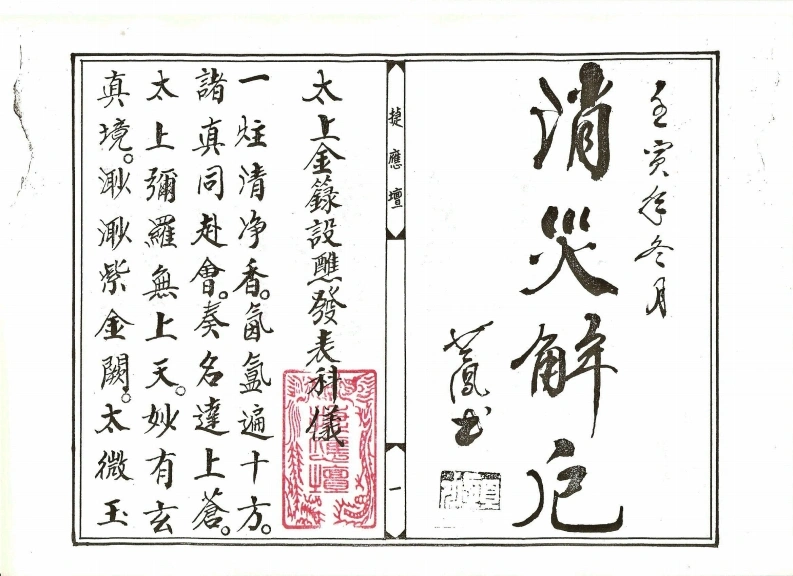 壬寅年冬月
消災解厄
書
捷應壇
一
太上金籙設醮發表科儀
一炷清净香。氤氳遍十方。
諸真同赴會。奏名達上蒼。
太上彌羅無上天。妙有玄
真境。渺渺紫金闕。太微玉